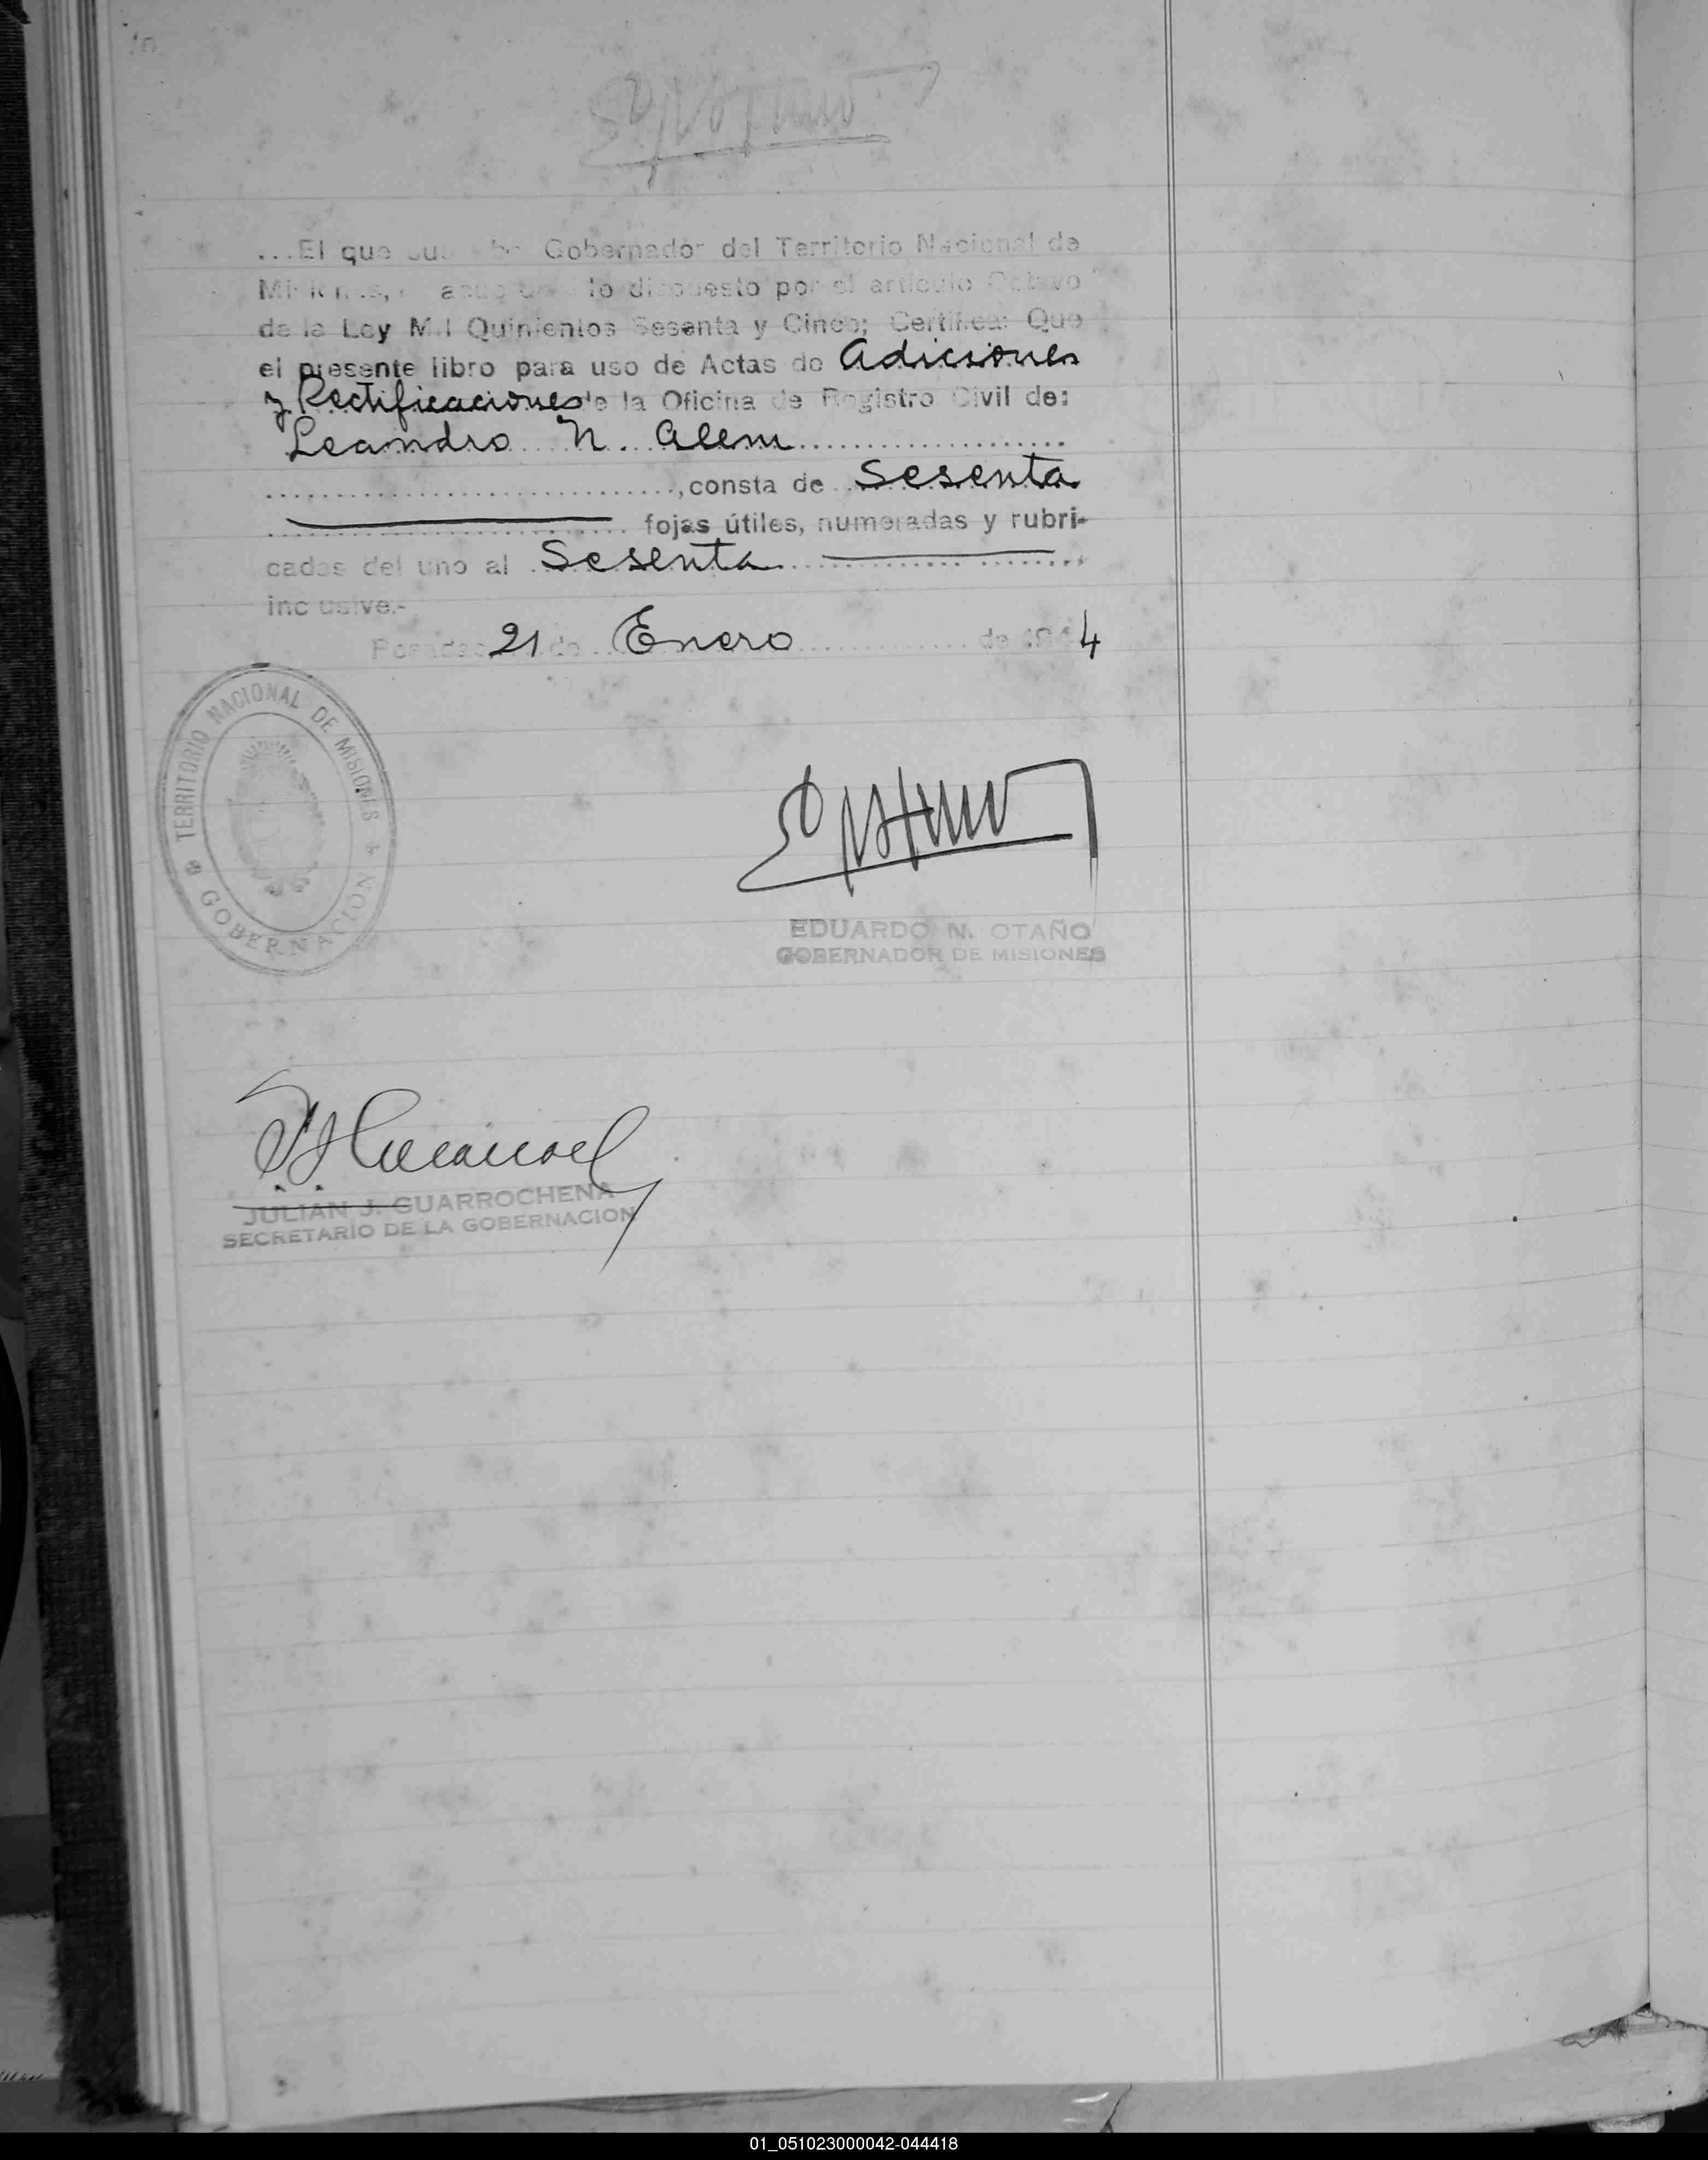 ...El que Gobernador del Territorio Nacional de
Misiones, lo dispuesto por el artículo Octavo
de la Ley Mil Quinientos Sesenta y Cinco; Certifica: Que
el presente libro para uso de Actas de Adiciones
y Rectificaciones de la Oficina de Registro Civil de:
Leandro N. Alem
, consta de Sesenta
fojas útiles, numeradas y rubri-
cadas del uno al Sesenta
inclusive.-
Posadas 21 de Enero de 1944
TERRITORIO NACIONAL DE MISIONES
GOBERNACION
EDUARDO M. OTAÑO
GOBERNADOR DE MISIONES
JULIAN J. GUARROCHENA
SECRETARIO DE LA GOBERNACION
01_051023000042-044418